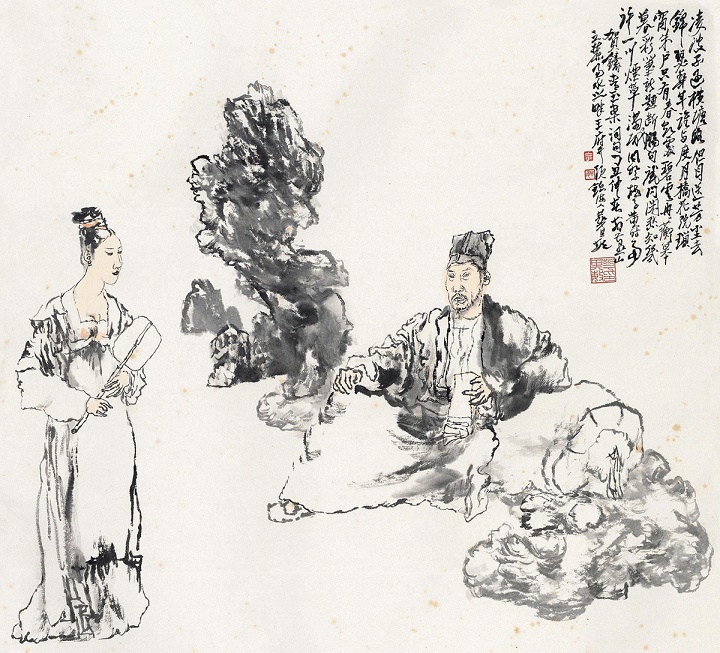 凌波不過橫塘路但目送芳塵去
錦瑟華年誰與度月橋花院瑣
窗朱戶只有春知處碧雲冉冉蘅皋
暮彩筆新題斷腸句試問閒愁知幾
許一川煙草滿城風絮梅子黃時雨
賀鑄青玉案詞句丁丑仲春於黃山